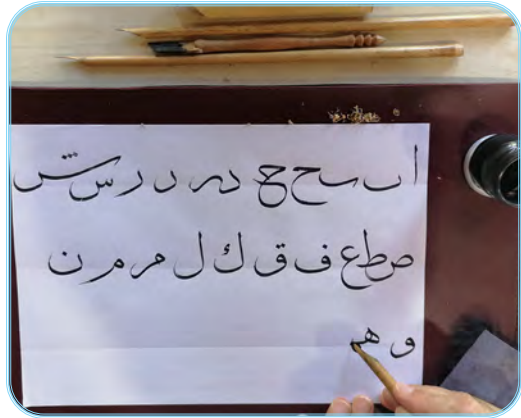 ا ں ح ح د ر ر س ش
ص ط ع ف ق ك ل م م ن
و هـ